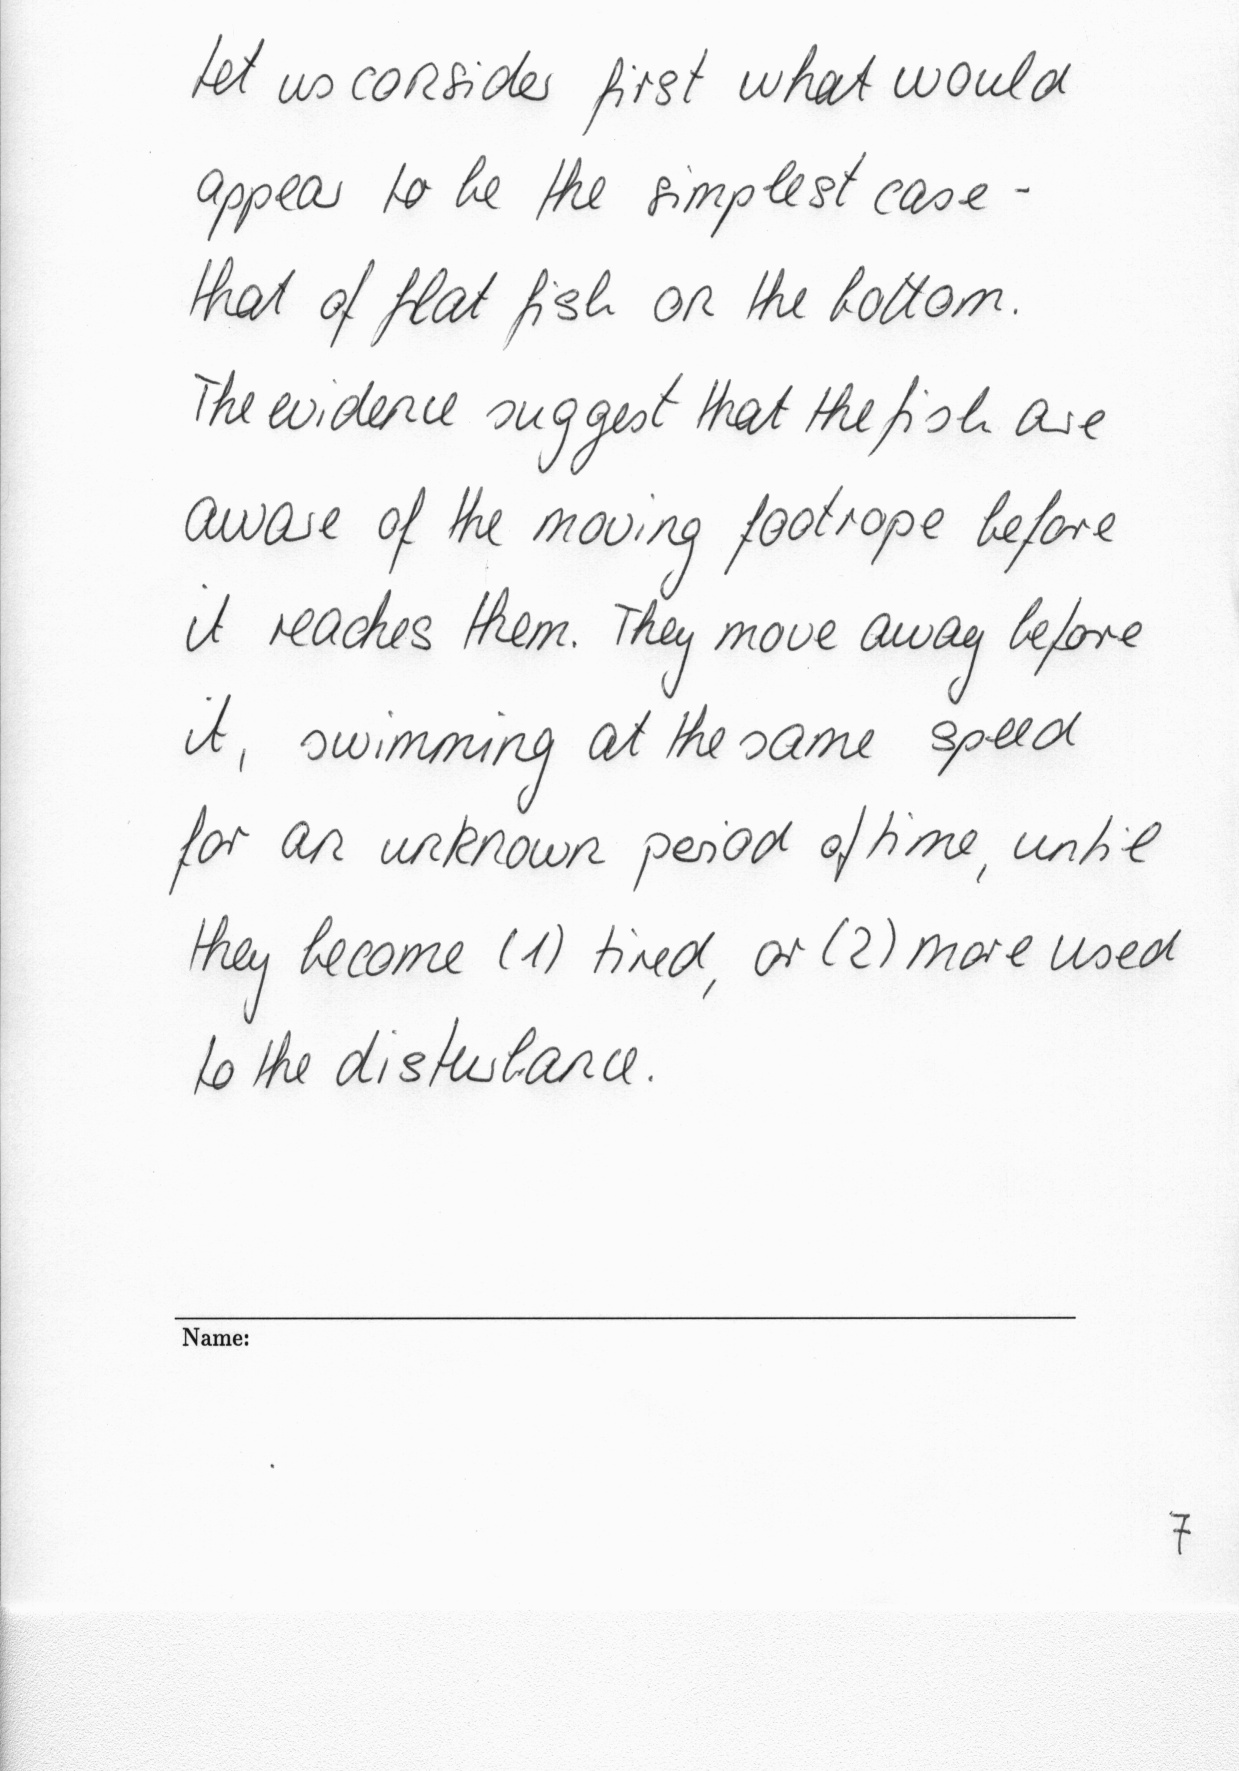 Let us consider first what would
appear to be the simplest case -
that of flat fish on the bottom.
The evidence suggest that the fish are
aware of the moving footrope before
it reaches them. They move away before
it, swimming at the same speed
for an unknown period of time, until
they become (1) tired, or (2) more used
to the disturbance.
Name:
7